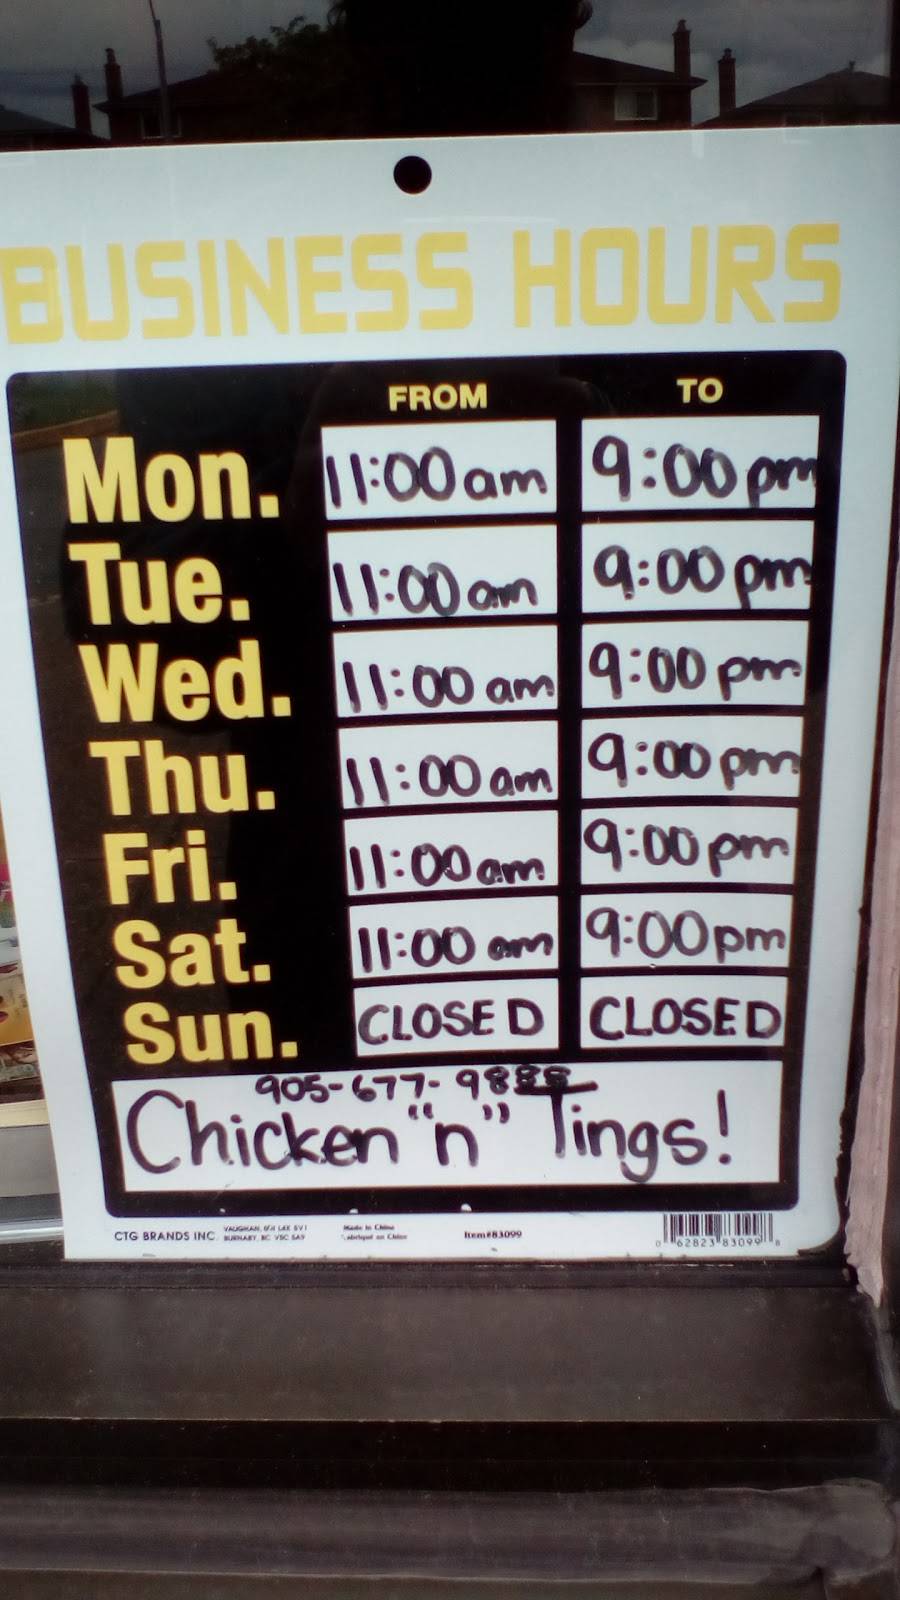 BUSINESS HOURS
FROM TO
Mon. 11:00 am 9:00 pm
Tue. 11:00 am 9:00 pm
Wed. 11:00 am 9:00 pm
Thu. 11:00 am 9:00 pm
Fri. 11:00 am 9:00 pm
Sat. 11:00 am 9:00 pm
Sun. CLOSED CLOSED
905-677-
Chicken "n" Tings!
CTG BRANDS INC. VAUGHAN, Made in China Item#83099
BURNABY, BC V5C 5A9
0 62823 83099 8